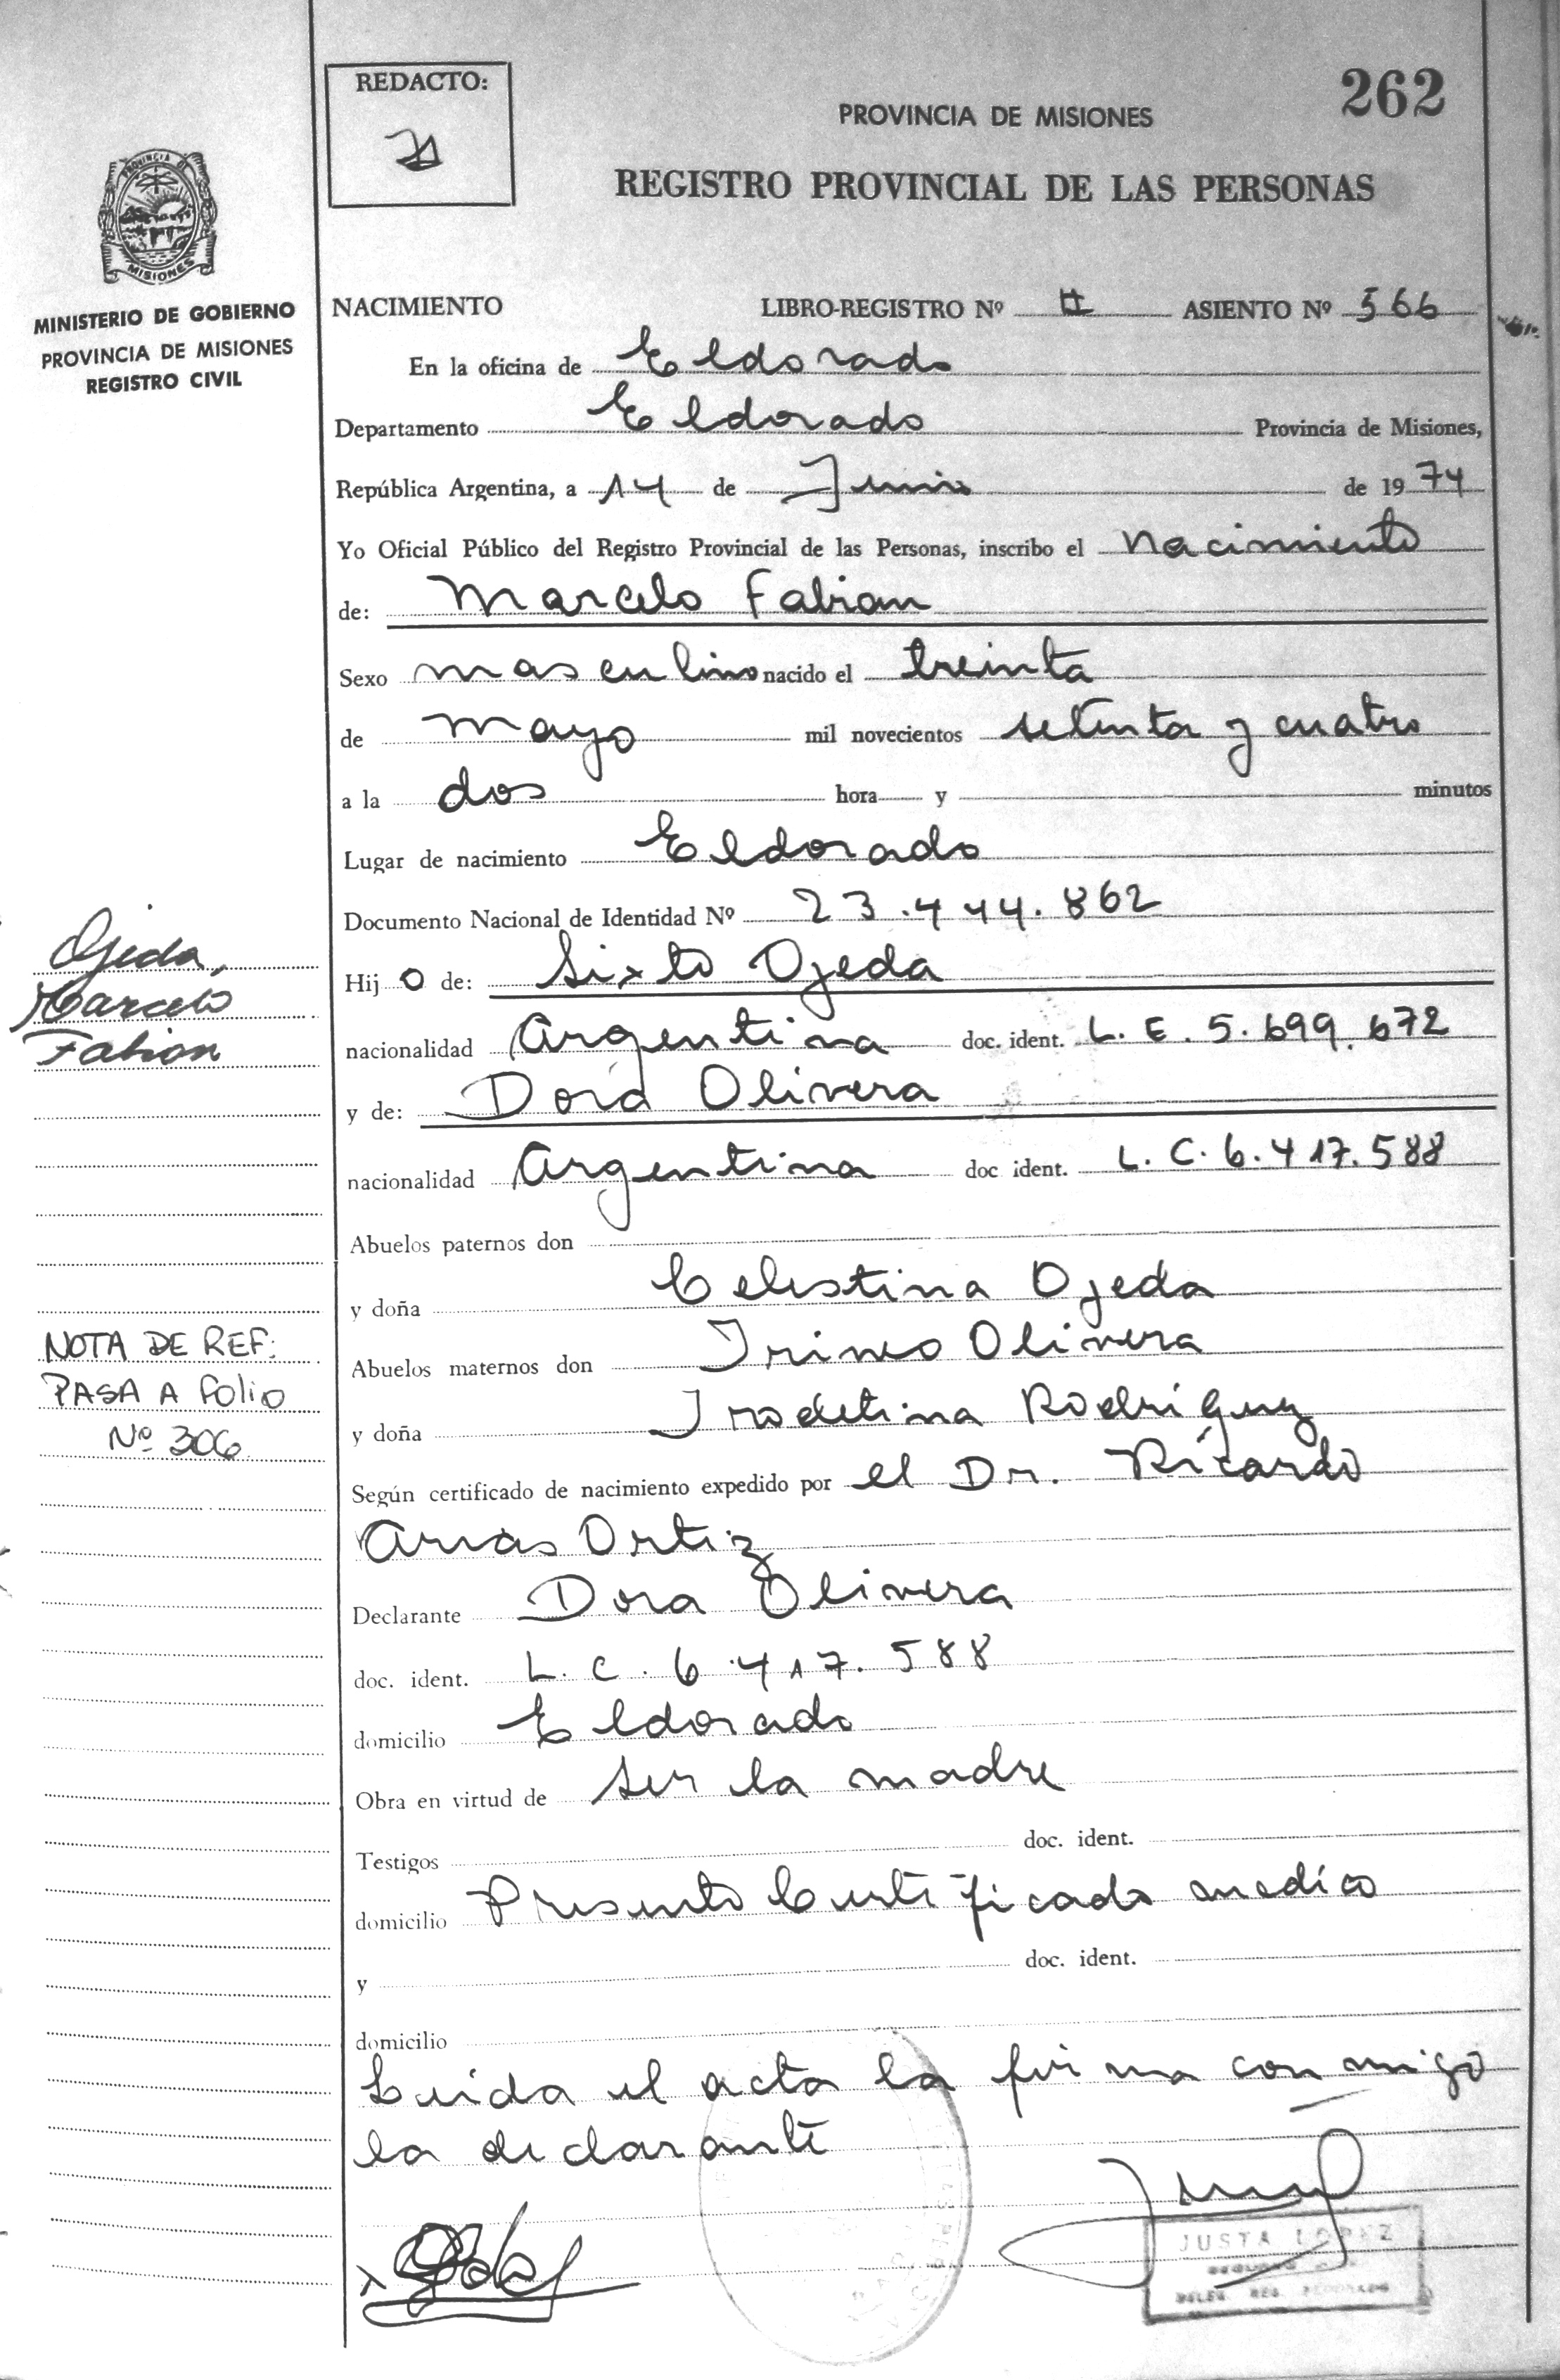 REDACTO:
262
PROVINCIA DE MISIONES
REGISTRO PROVINCIAL DE LAS PERSONAS
PROVINCIA DE
MISIONES
MINISTERIO DE GOBIERNO
PROVINCIA DE MISIONES
REGISTRO CIVIL
NACIMIENTO LIBRO-REGISTRO Nº II ASIENTO Nº 566
En la oficina de Eldorado
Departamento Eldorado Provincia de Misiones,
República Argentina, a 14 de Junio de 1974
Yo Oficial Público del Registro Provincial de las Personas, inscribo el Nacimiento
de: Marcelo Fabian
Sexo masculino nacido el treinta
de mayo mil novecientos setenta y cuatro
a la dos hora y minutos
Lugar de nacimiento Eldorado
Documento Nacional de Identidad Nº 23.444.862
Hijo de: Sixto Ojeda
nacionalidad Argentina doc. ident. L. E. 5.699.672
y de: Dora Olivera
nacionalidad Argentina doc ident. L. C. 6.417.588
Abuelos paternos don
y doña Celestina Ojeda
Abuelos maternos don Irineo Olivera
y doña Rodriguez
Según certificado de nacimiento expedido por el Dr. Ricardo
Arias Ortiz
Declarante Dora Olivera
doc. ident. L. C. 6.417.588
domicilio Eldorado
Obra en virtud de ser la madre
Testigos doc. ident.
domicilio Presento Certificado medico
y doc. ident.
domicilio
Leida el acta la firma con migo
la declarante
JUSTA LOPEZ
Ojeda,
Marcelo
Fabian
NOTA DE REF:
PASA A folio
Nº 306